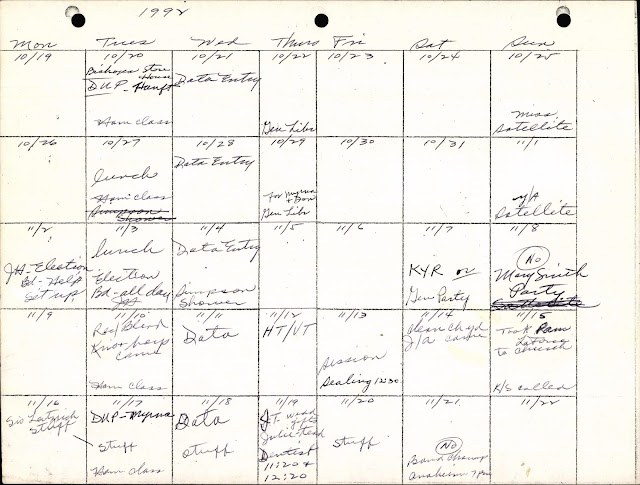 1992
Mon Tues Wed Thurs Fri Sat Sun
10/19 10/20 10/21 10/22 10/23 10/24 10/25
Bishops Store
House
DUP- Hunt
Ham class
Data Entry
Gen Libr
Miss.
Satellite
10/26 10/27 10/28 10/29 10/30 10/31 11/1
Lunch
Ham class
Simpson
Shower
Data Entry
For Myrna
+ Don
Gen Libr
Y/A
Satellite
11/2 11/3 11/4 11/5 11/6 11/7 11/8
JA-Election
Bd-Help
Set up
Lunch
Election
Bd-all day
Data Entry
Simpson
Shower
KYR or
Gen Party
No
Mary Smith
Party
Satellite
11/9 11/10 11/11 11/12 11/13 11/14 11/15
Red/Blend
came
Ham class
Data
HT/VT
session
Sealing 12:30
clean chyd
J/A came
Took Pam
to church
K/S called
11/16 11/17 11/18 11/19 11/20 11/21 11/22
Stuff
DUP-Myrna
Stuff
Ham class
Data
Stuff
J.T. wood
gifts
Julie-
Dentist
11:20 +
12:20
Stuff
No
Band champ
Anaheim 7pm